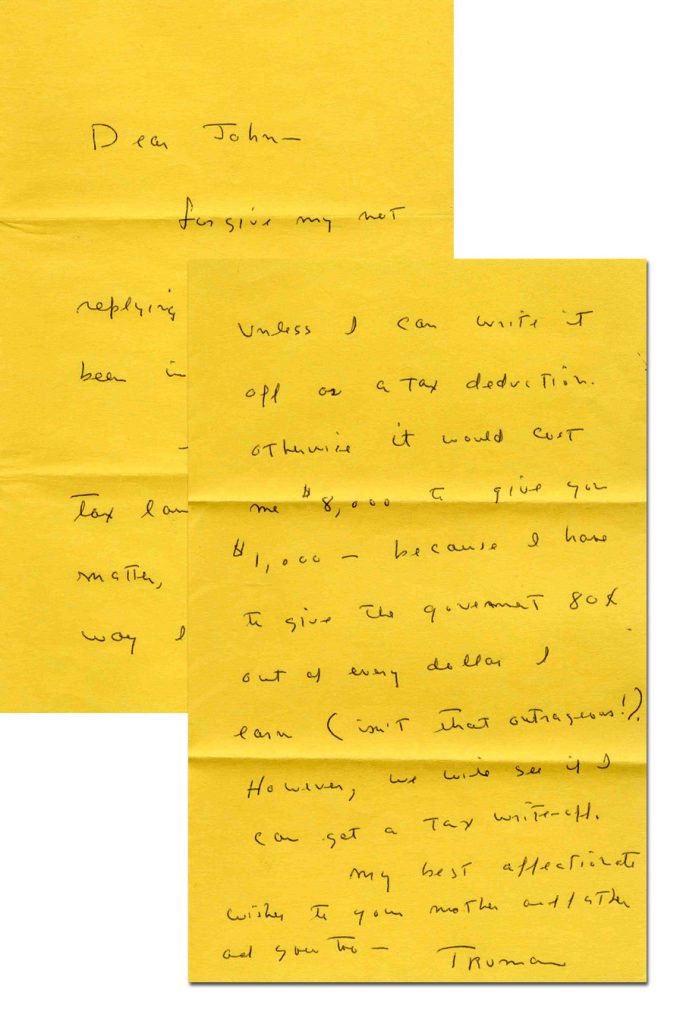 Dear John—
forgive my not
replying
been in
Tax law
matter,
way I
unless I can write it
off as a Tax deduction.
otherwise it would cost
me $8,000 to give you
$1,000 — because I have
to give the goverment 80%
out of every dollar I
earn (isn't that outrageous!).
However, we will see if I
can get a Tax write-off.
my best affectionate
wishes to your mother and father
and you too — Truman